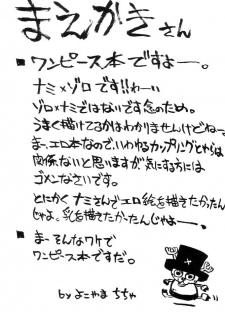 まえがきさん
■ワンピース本ですよー。
ナミ×ゾロです!!わーい
ゾロ×ナミではないです念のため。
うまく描けてるかはわかりませんけどねー
まー、エロ本なので、いわゆるカップリングとやらは
関係ないと思いますが、気にする方には
ゴメンなさいです。
とにかくナミさんでエロ絵を描きたかったん
じゃよ。乳を描きたかったんじゃよー、
■まー そんなワケで
ワンピース本ですだ。
by よこやま ちちゃ